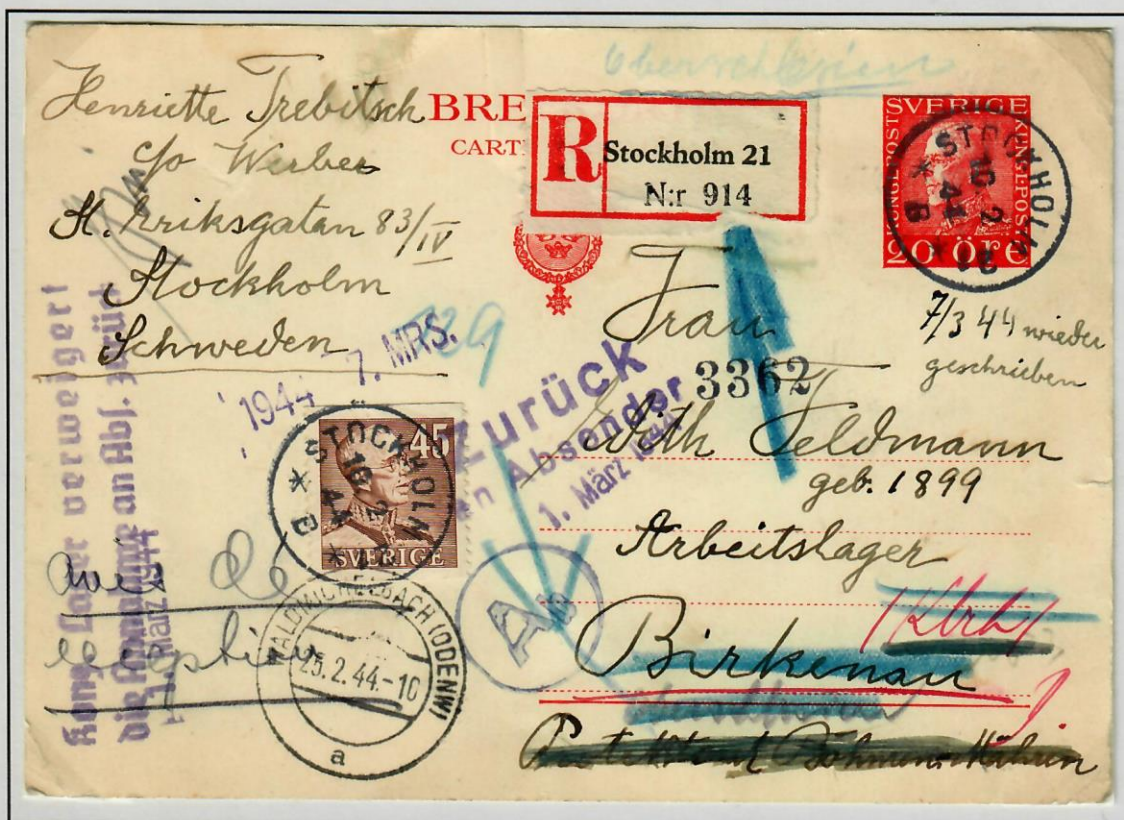 Oberschlesien
Henriette Trebitsch
c/o Werber
St. Eriksgatan 83/IV
Stockholm
Schweden
BRE
CART
R
Stockholm 21
N:r 914
SVERIGE
20 ÖRE
STOCKHOLM 21
10 2
44
* B *
7/3 44 wieder
geschrieben
Frau
3362
Edith Feldmann
geb. 1899
Arbeitslager
Birkenau
Protektorat Böhmen-Mähren
7. MRS.
1944
Zurück
an Absender
1. März 1944
45
SVERIGE
STOCKHOLM 21
10 2
44
* B *
avis de
réception
WALDMICHELBACH (ODENW)
25.2.44.-10
a
Konz. Lager verweigert
die Annahme an Abs. zurück
1. März 1944